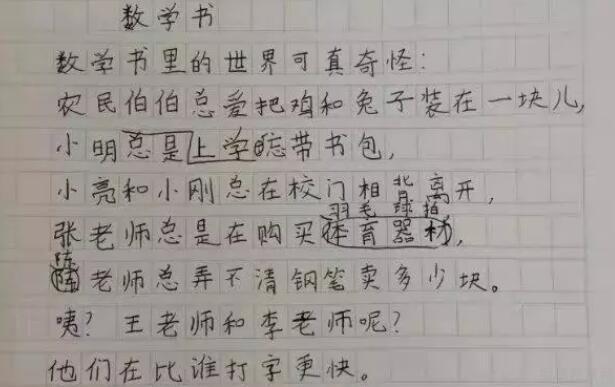 数学书
数学书里的世界可真奇怪:
农民伯伯总爱把鸡和兔子装在一块儿,
小明总是上学忘带书包,
小亮和小刚总在校门相背离开,
羽毛球拍
张老师总是在购买体育器材,
陈老师总弄不清钢笔卖多少块。
咦?王老师和李老师呢?
他们在比谁打字更快。